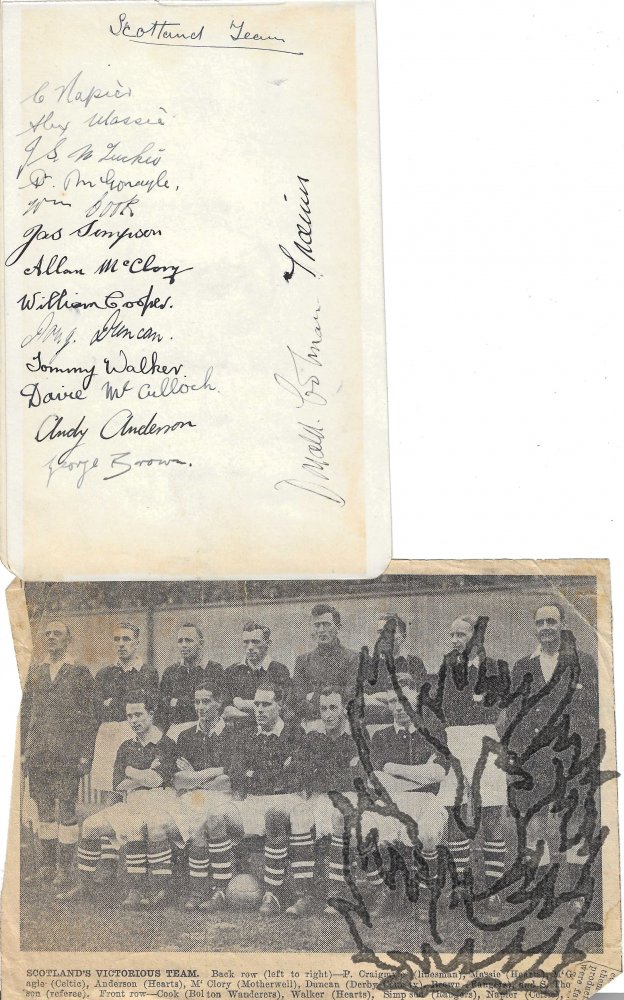 Scotland Team
C Napier
Alex Massie
J.S. McLuckie
P. McGonagle.
Wm Cook
Jas Simpson
Allan McClory
William Cooper.
Doug. Duncan.
Tommy Walker
Davie McCulloch.
Andy Anderson
George Brown.
Donald. Colman. Trainer
SCOTLAND'S VICTORIOUS TEAM. Back row (left to right)—P. Craigmyle (linesman), Massie (Hearts),
agle (Celtic), Anderson (Hearts), M'Clory (Motherwell), Duncan (Derby County), Brown (Rangers), and S.
son (referee). Front row—Cook (Bolton Wanderers), Walker (Hearts), Simpson (Rangers), Napier